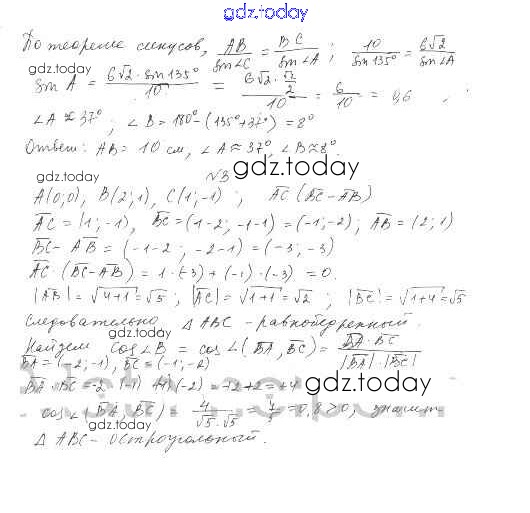 gdz.today
По теореме синусов, AB/sin∠C = BC/sin∠A ; 10/sin135° = 6√2/sin∠A
gdz.today
sin A = 6√2·sin135°/10 = 6√2·√2/2/10 = 6/10 = 0,6
∠A ≈ 37° ; ∠B = 180° - (135° + 37°) = 8°
Ответ: AB = 10 см, ∠A ≈ 37°, ∠B ≈ 8°.
№3 gdz.today
A(0;0), B(2;1), C(1;-1) ; AC (BC - AB)
AC = (1;-1), BC = (1-2; -1-1) = (-1;-2) ; AB = (2;1)
BC - AB = (-1-2; -2-1) = (-3;-3)
AC · (BC - AB) = 1·(-3) + (-1)·(-3) = 0.
|AB| = √4+1 = √5 ; |AC| = √1+1 = √2 ; |BC| = √1+4 = √5
Следовательно ΔABC - равнобедренный.
gdz.today
Найдем cos∠B = cos∠(BA, BC) = BA·BC/|BA|·|BC|
BA = (-2;-1), BC = (-1;-2)
gdz.today
cos∠(BA, BC) = 4/√5·√5 = = 0,8 > 0, значит
ΔABC - остроугольный.
gdz.today